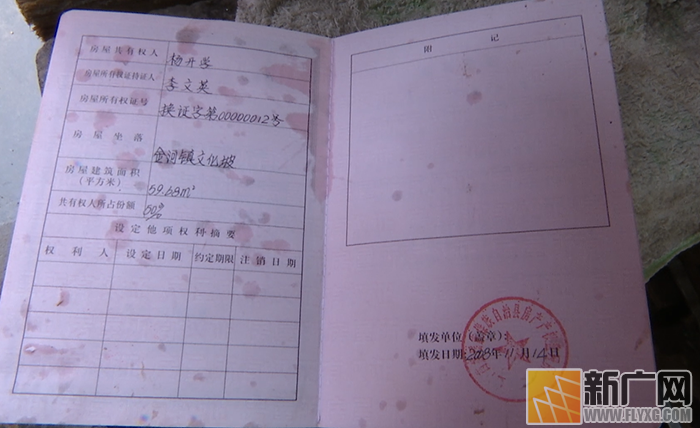 房屋共有权人 杨开学
房屋所有权证持证人 李文英
房屋所有权证号 换证字第00000012号
房屋坐落 金河镇文化坡
房屋建筑面积
(平方米) 59.68m²
共有权人所占份额 50%
设定他项权利摘要
权利人 设定日期 约定期限 注销日期
附记
族自治县房产
填发单位(盖章):
填发日期: 2013年11月14日
新广网
WWW.FLYXG.COM